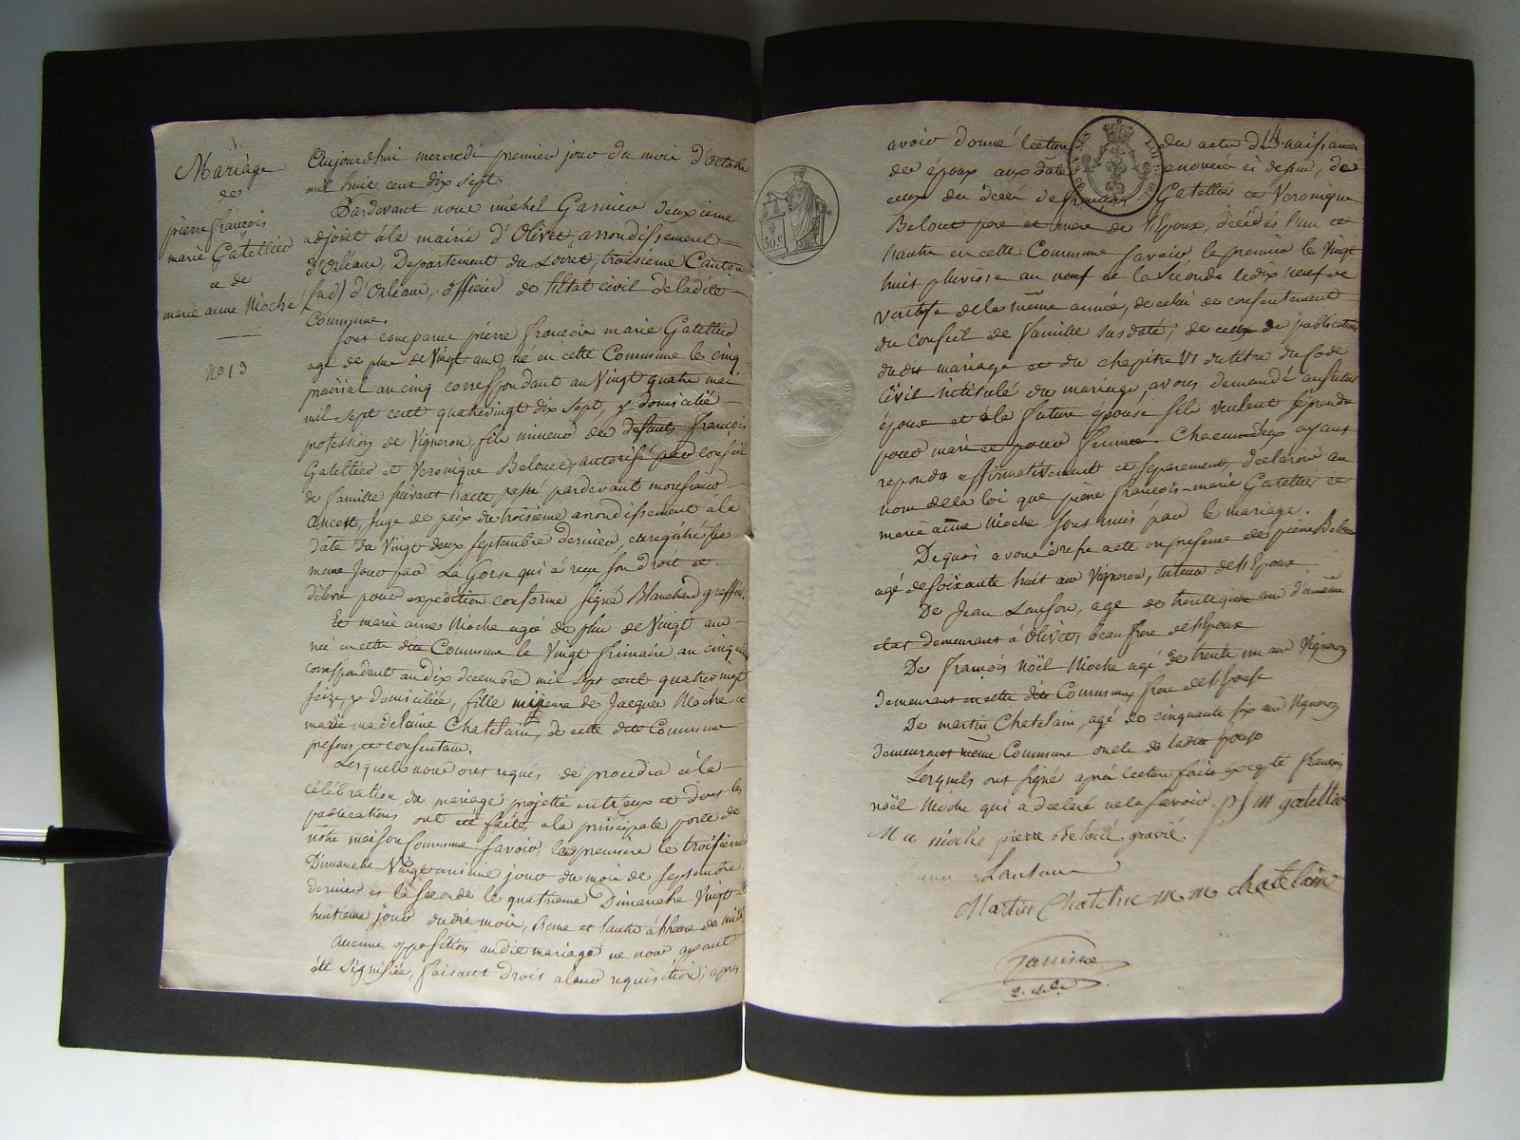 Mariage
de
pierre françois
marie Gatellier
et de
marie anne Nioche
No 13
Aujourdhui mercredi premier jour du mois d'octobre
mil huit cent dix sept
Pardevant nous michel Garnier deuxieme
adjoint à la mairie d'Olivet, arrondissement
d'Orléans, Département du Loiret, troisieme Canton
(sud) d'Orléans, officier de l'état civil de ladite
Commune.
Sont comparus pierre françois marie Gatellier
agé de plus de Vingt ans né en cette Commune le cinq
prairial an cinq correspondant au Vingt quatre mai
mil sept cent quatrevingt dix sept, y domicilié
profession de Vigneron, fils mineur des defunts françois
Gatellier et Veronique Belouet, autorisé par conseil
de famille suivant l'acte passé pardevant monsieur
juge de paix du troisieme arrondissement à la
date du Vingt deux septembre dernier, enregistré le
meme jour par La Gorse qui a reçu son droit et
délivré pour expédition conforme signé Blanchard greffier.
Et marie anne Nioche agée de plus de Vingt ans
née en cette dite Commune le Vingt frimaire an cinq
correspondant au dix decembre mil sept cent quatrevingt
seize, y domiciliée, fille mineure de Jacques Nioche et
marie madelaine Chatelain, de cette dite Commune
présens et consentans.
Lesquels nous ont requis de proceder à la
célébration du mariage projetté entr'eux et dont les
publications ont été faites à la principale porte de
notre maison Commune savoir, la premiere le troisieme
Dimanche Vingt unieme jour du mois de septembre
dernier et la seconde le quatrieme Dimanche Vingt
huitieme jour dudit mois, l'une et l'autre à l'heure de midi
Aucune opposition audit mariage ne nous ayant
été signifiée, faisant droit à leur requisition, après
avoir donné lecture des actes de naissance
des époux aux dates enoncés ci dessus, de
ceux du decès de françois Gatellier et Veronique
Belouet père et mere de l'époux, décédés l'un et
l'autre en cette Commune savoir le premier le Vingt
huit pluviose an neuf et la seconde le dix neuf
ventose de la même année, de celui de consentement
du conseil de famille susdaté, de ceux de publications
dudit mariage et du chapitre VI du titre du Code
Civil intitulé du mariage, avons demandé au futur
époux et à la future épouse s'ils veulent se prendre
pour mari et pour femme. Chacun d'eux ayant
repondu affirmativement et separement, declarons au
nom de la loi que pierre françois marie Gatellier et
marie anne Nioche sont unis par le mariage.
De quoi avons dressé acte en presence de pierre Belouet
agé de soixante huit ans Vigneron, tuteur de l'Epoux
De Jean Lanson, agé de trente ans d'même
etat demeurant à Olivet, beau frere de l'époux
De françois Noël Nioche agé de trente un ans Vigneron
demeurant en cette dite Commune frere de l'épouse
De martin Chatelain, agé de cinquante six ans Vigneron
demeurant même Commune oncle de ladite épouse
Lesquels ont signé après lecture faite excepté françois
noël Nioche qui a declaré ne le savoir. p f m gatellier
M a nioche pierre belouet
Lanson
Martin Chatelin m m chatelain
Garnier